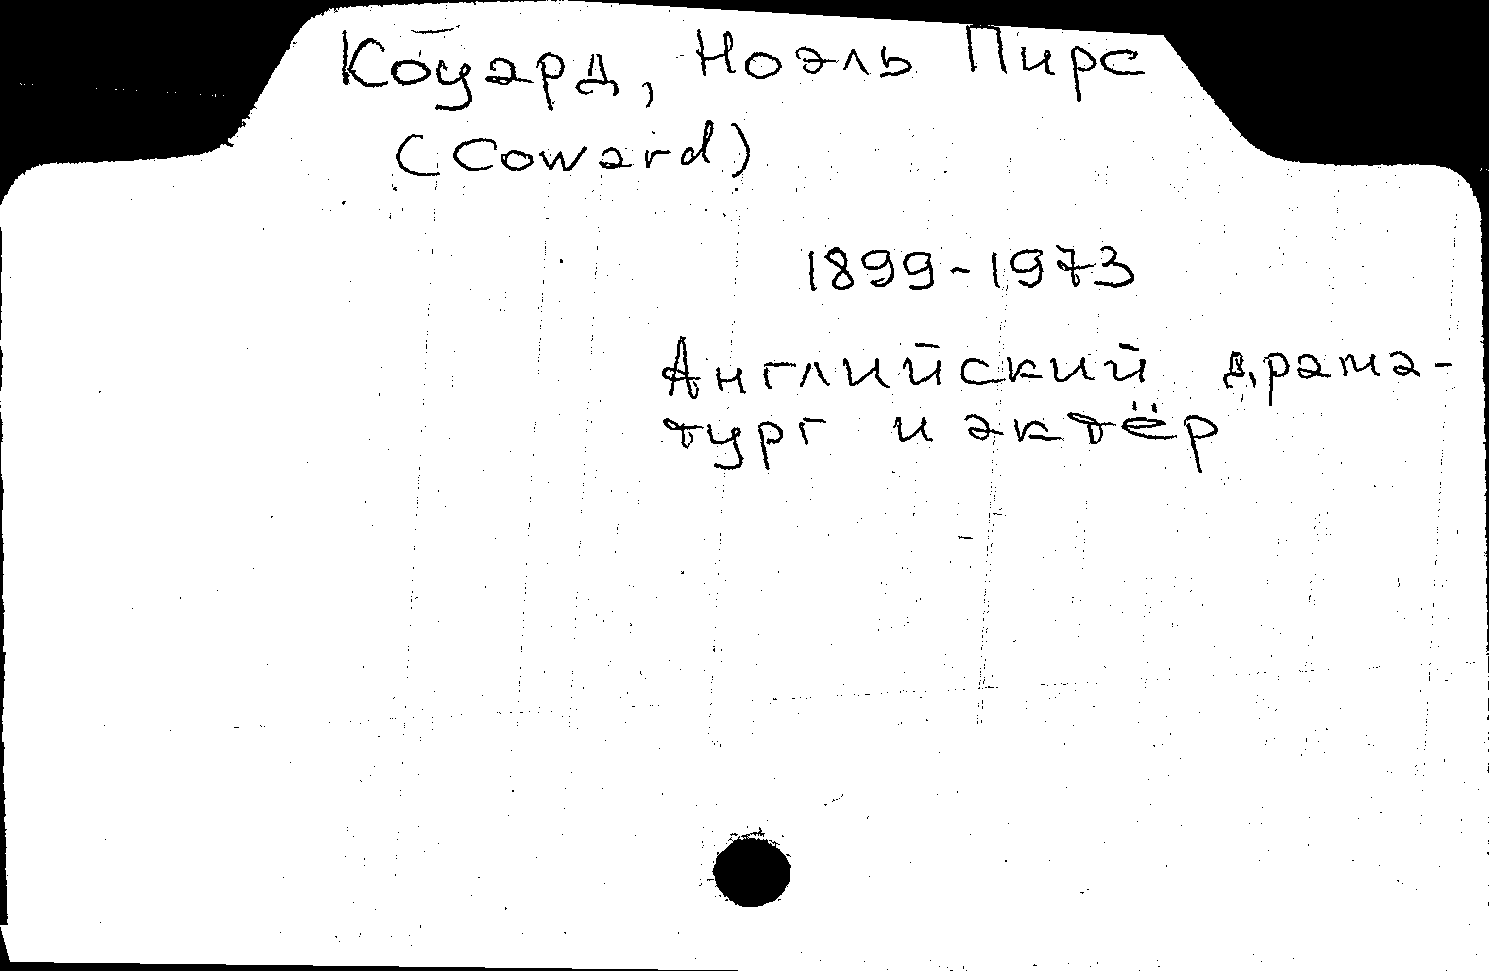 Коуард, Ноэль Пирс
(Coward)
1899-1973
Английский драма-
тург и актёр